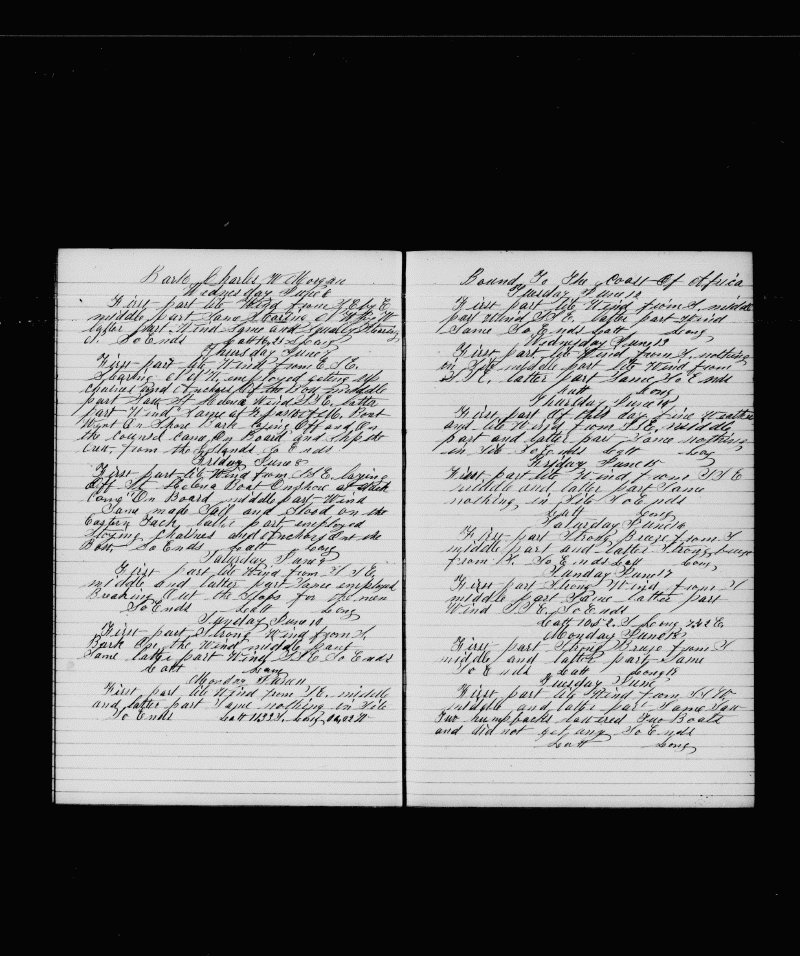 Bark Charles W Morgan
Wednesday June 6
First part lite Wind from S E by E
middle part Same Stearing W
latter part Wind Same and Squaly Stearing
So Ends Latt 16,25 Long
Thursday June 7
First part lite Wind from E S E
Stearing employed geting up
chaines and Anchors of the bow middle
part Saw St Helena Wind S S E latter
part Wind Same at 8 Boat
Went On Shore Bark laying Off and On
the Island came On Board and Shipt
crew from the Islands So Ends
Friday June 8
First part lite Wind from S S E laying
Off St Helena Boat Onshore at
came On Board middle part Wind
Same made Sail and Stood on the
Eastern Tack latter part employed
stoying chaines and Anchors On the
Bow So Ends Latt Long
Saturday June 9
First part lite Wind from S S E
middle and latter part Same employed
Breaking Out the Slops for the men
So Ends Latt Long
Sunday June 10
First part Strong Wind from S.
Bark On the Wind middle part
Same latter part Wind S S E So Ends
Latt Long
Monday June 11
First part lite Wind from S E. middle
and latter part Same nothing in Site
So Ends Latt 14,33 S. Long
Bound To The Coast Of Africa
Tuesday June 12
First part lite Wind from S middle
part Wind S S E. latter part Wind
Same So Ends Latt Long
Wednesday June 13
First part lite Wind from S. nothing
in Site middle part lite Wind from
S S E. latter part Same So Ends
Latt Long
Thursday June 14
First part Of this day fine Weather
and lite Winds from S S E middle
part and latter part Same nothing
in Site So Ends Latt Long
Friday June 15
First part lite Wind from S S E
middle and latter part Same
nothing in Site So Ends
Latt Long
Saturday June 16
First part Strong Breze from S
middle part and latter Strong breze
from S. So Ends Latt Long
Sunday June 17
First part Strong Wind from S
middle part Same latter part
Wind S S E. So Ends
Latt 10 52. S Long 7 32 E
Monday June 18
First part Strong Breze from S
middle and latter part Same
So Ends Latt Long
Tuesday June 19
First part lite Wind from S S W.
middle and latter part Same Saw
Two humpbacks lowered Two Boats
and did not get any So Ends
Latt Long